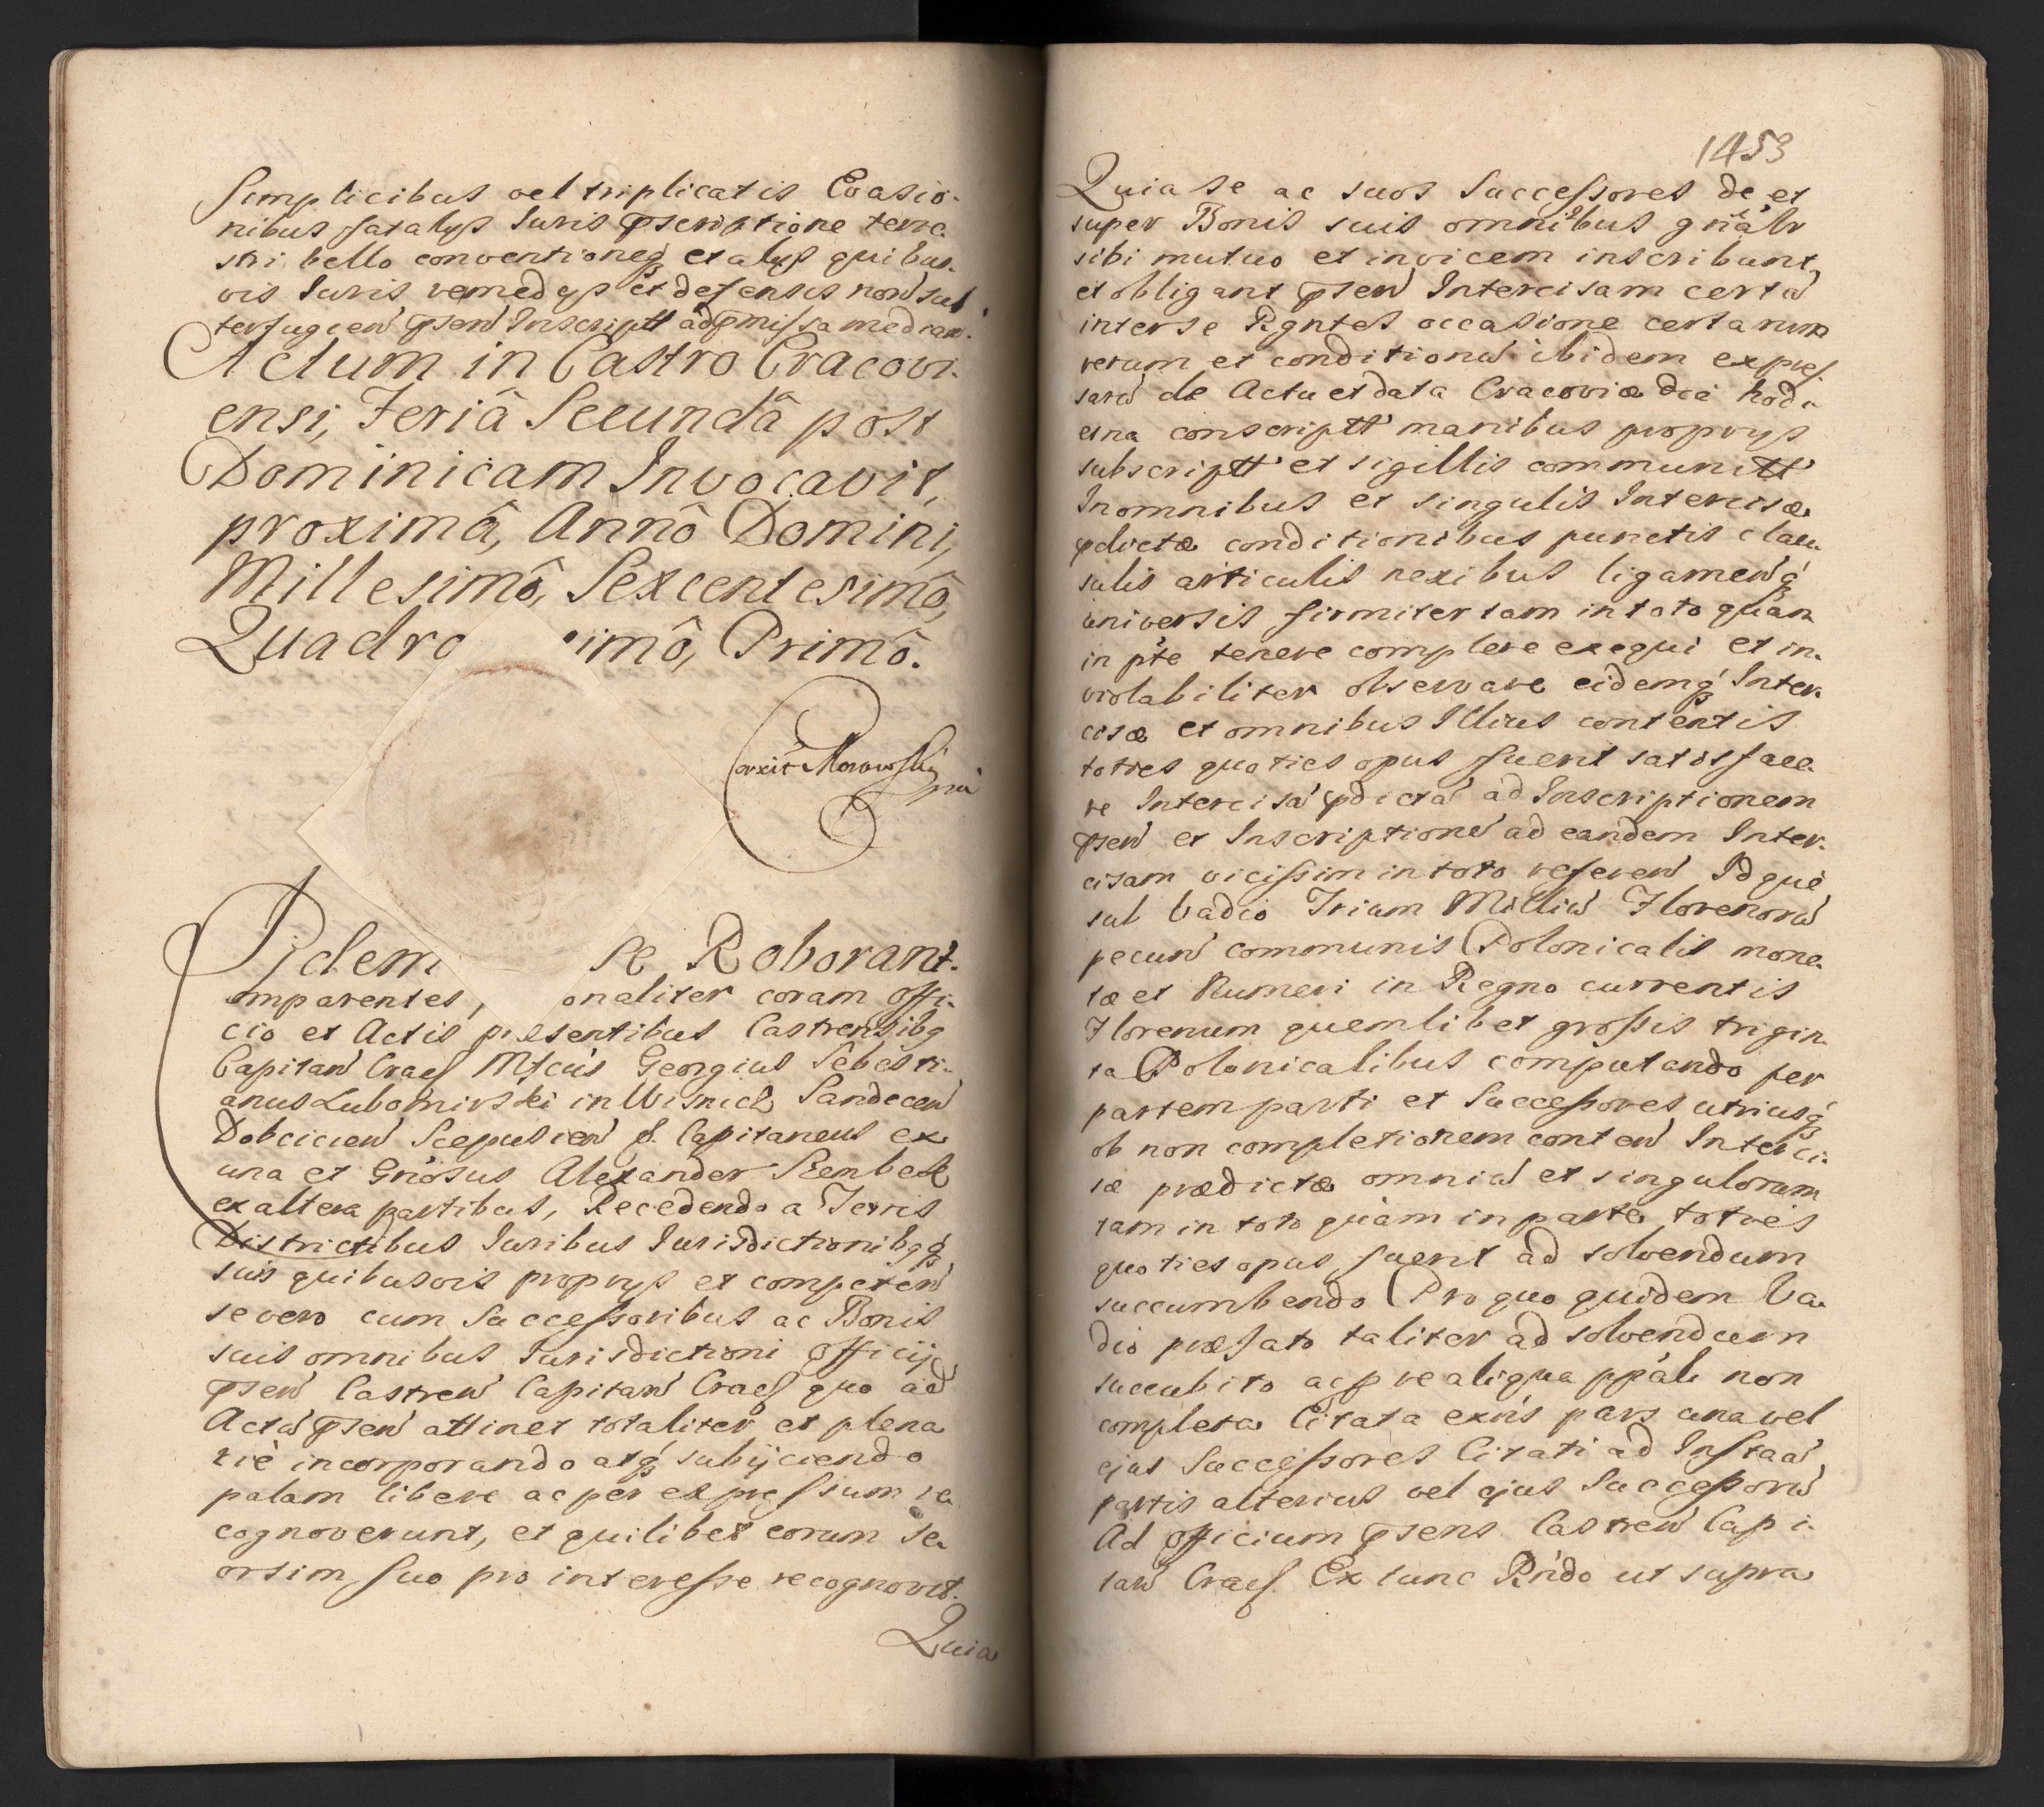 Simplicibus vel triplicatis Evasio-
nibus fatalys Iuris pscriptione terre
stri bello conventioneq et alys quibus-
vis Iuris remedys et defensis non sub
terfugien psen Inscriptt ad pmissa median.
Actum in Castro Cracovi-
ensi, Feriâ Secundâ post
Dominicam Invocavit,
proximâ, Annô Domini,
Millesimô, Sexcentesimô,
Quadra imô, Primô.
Correxit Morowski
mp
Ijdem se Roborant.
omparentes, onaliter coram offi-
cio et Actis presentibus Castrensibq
Capitan Cracs Mfcus Georgius Sebasti-
anus Lubomirski in Wisnicz Sandecen
Dobcicien Scepusien &. Capitaneus ex
una et Gnosus Alexander Kembek
ex altera partibus, Recedendo a Terris
Districtibus Iuribus Iurisdictionibqq
suis quibusvis proprys et competen
se vero cum Successoribus ac Bonis
suis omnibus Iurisdictioni officij
psen Castren Capitan Cracs quo ad
Actu psen attinet totaliter et plena
riè incorporando atq subijciendo
palam libere ac per expressum re
cognoverunt, et quilibet eorum se-
orsim suo pro interesse recognovit.
Quia
1453
Quia se ac suos Successores de et
super Bonis suis omnibus gnalr
sibi mutuo et invicem inscribunt,
et obligant psen Intercisam certa
inter se Rgntes occasione certarum
rerum et conditionu ibidem expres-
saru de Actu et data Cracoviæ die hodi
erna conscriptt manibus proprys
subscriptt et sigillis communitt
In omnibus et singulis Intercisæ
pdictæ conditionibus punctis clau
sulis articulis nexibus ligamenq
universis firmiter tam in toto quam
in pte tenere complere exequi et in-
violabiliter observare eidemq Inter
cisæ et omnibus Illius contentis
toties quoties opus fuerit satisface-
re Intercisa pdicta ad Inscriptionem
psen et Inscriptione ad eandem Inter-
cisam vicissim in toto referen Id que
sub Vadio Trium Milliu Florenoru
pecun communis Polonicalis mone-
tæ et Numeri in Regno currentis
Florenum quemlibet grossis trigin-
ta Polonicalibus computando per
partem parti et Successores utriusq
ob non completionem conten Interci-
sæ prædictæ omniu et singulorum
tam in toto quàm in parte toties
quoties opus fuerit ad solvendum
succumbendo Pro quo quidem Va-
dio præfato taliter ad solvendum
succubito ac p re aliqua ppali non
completa Citata exns pars una vel
ejus Successores Citati ad Instaa
partis alterius vel ejus Successoru
Ad officium psens Castren Capi-
tan Cracs. Ex tunc Rndo ut supra